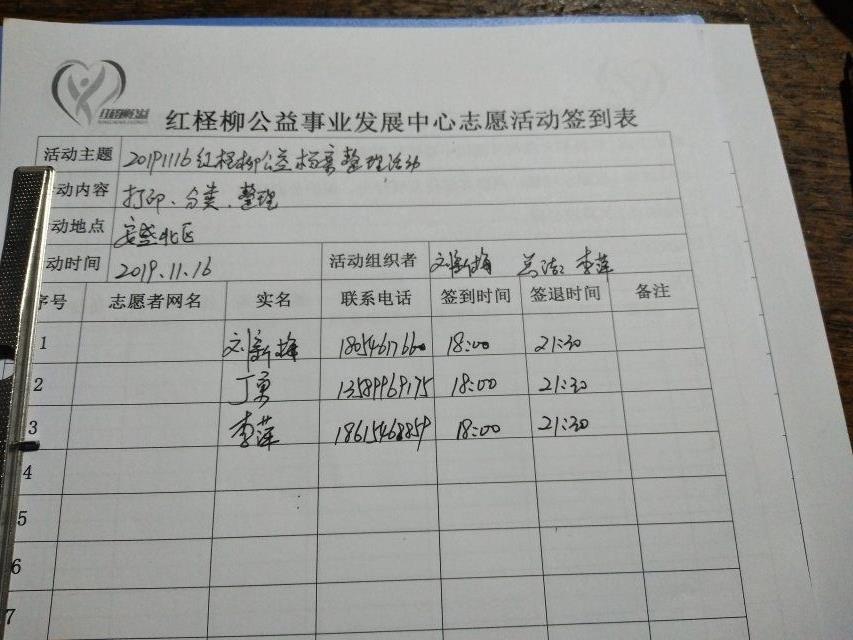 红柽柳公益
红柽柳公益事业发展中心志愿活动签到表
活动主题 20191116红柽柳公益档案整理活动
动内容 打印、分类、整理
动地点 安盛北区
动时间 2019.11.16 活动组织者 刘新梅 李萍
序号 志愿者网名 实名 联系电话 签到时间 签退时间 备注
1 刘新梅 18:00 21:30
2 13589969175 18:00 21:30
3 李萍 18615468859 18:00 21:30
4
5
6
7